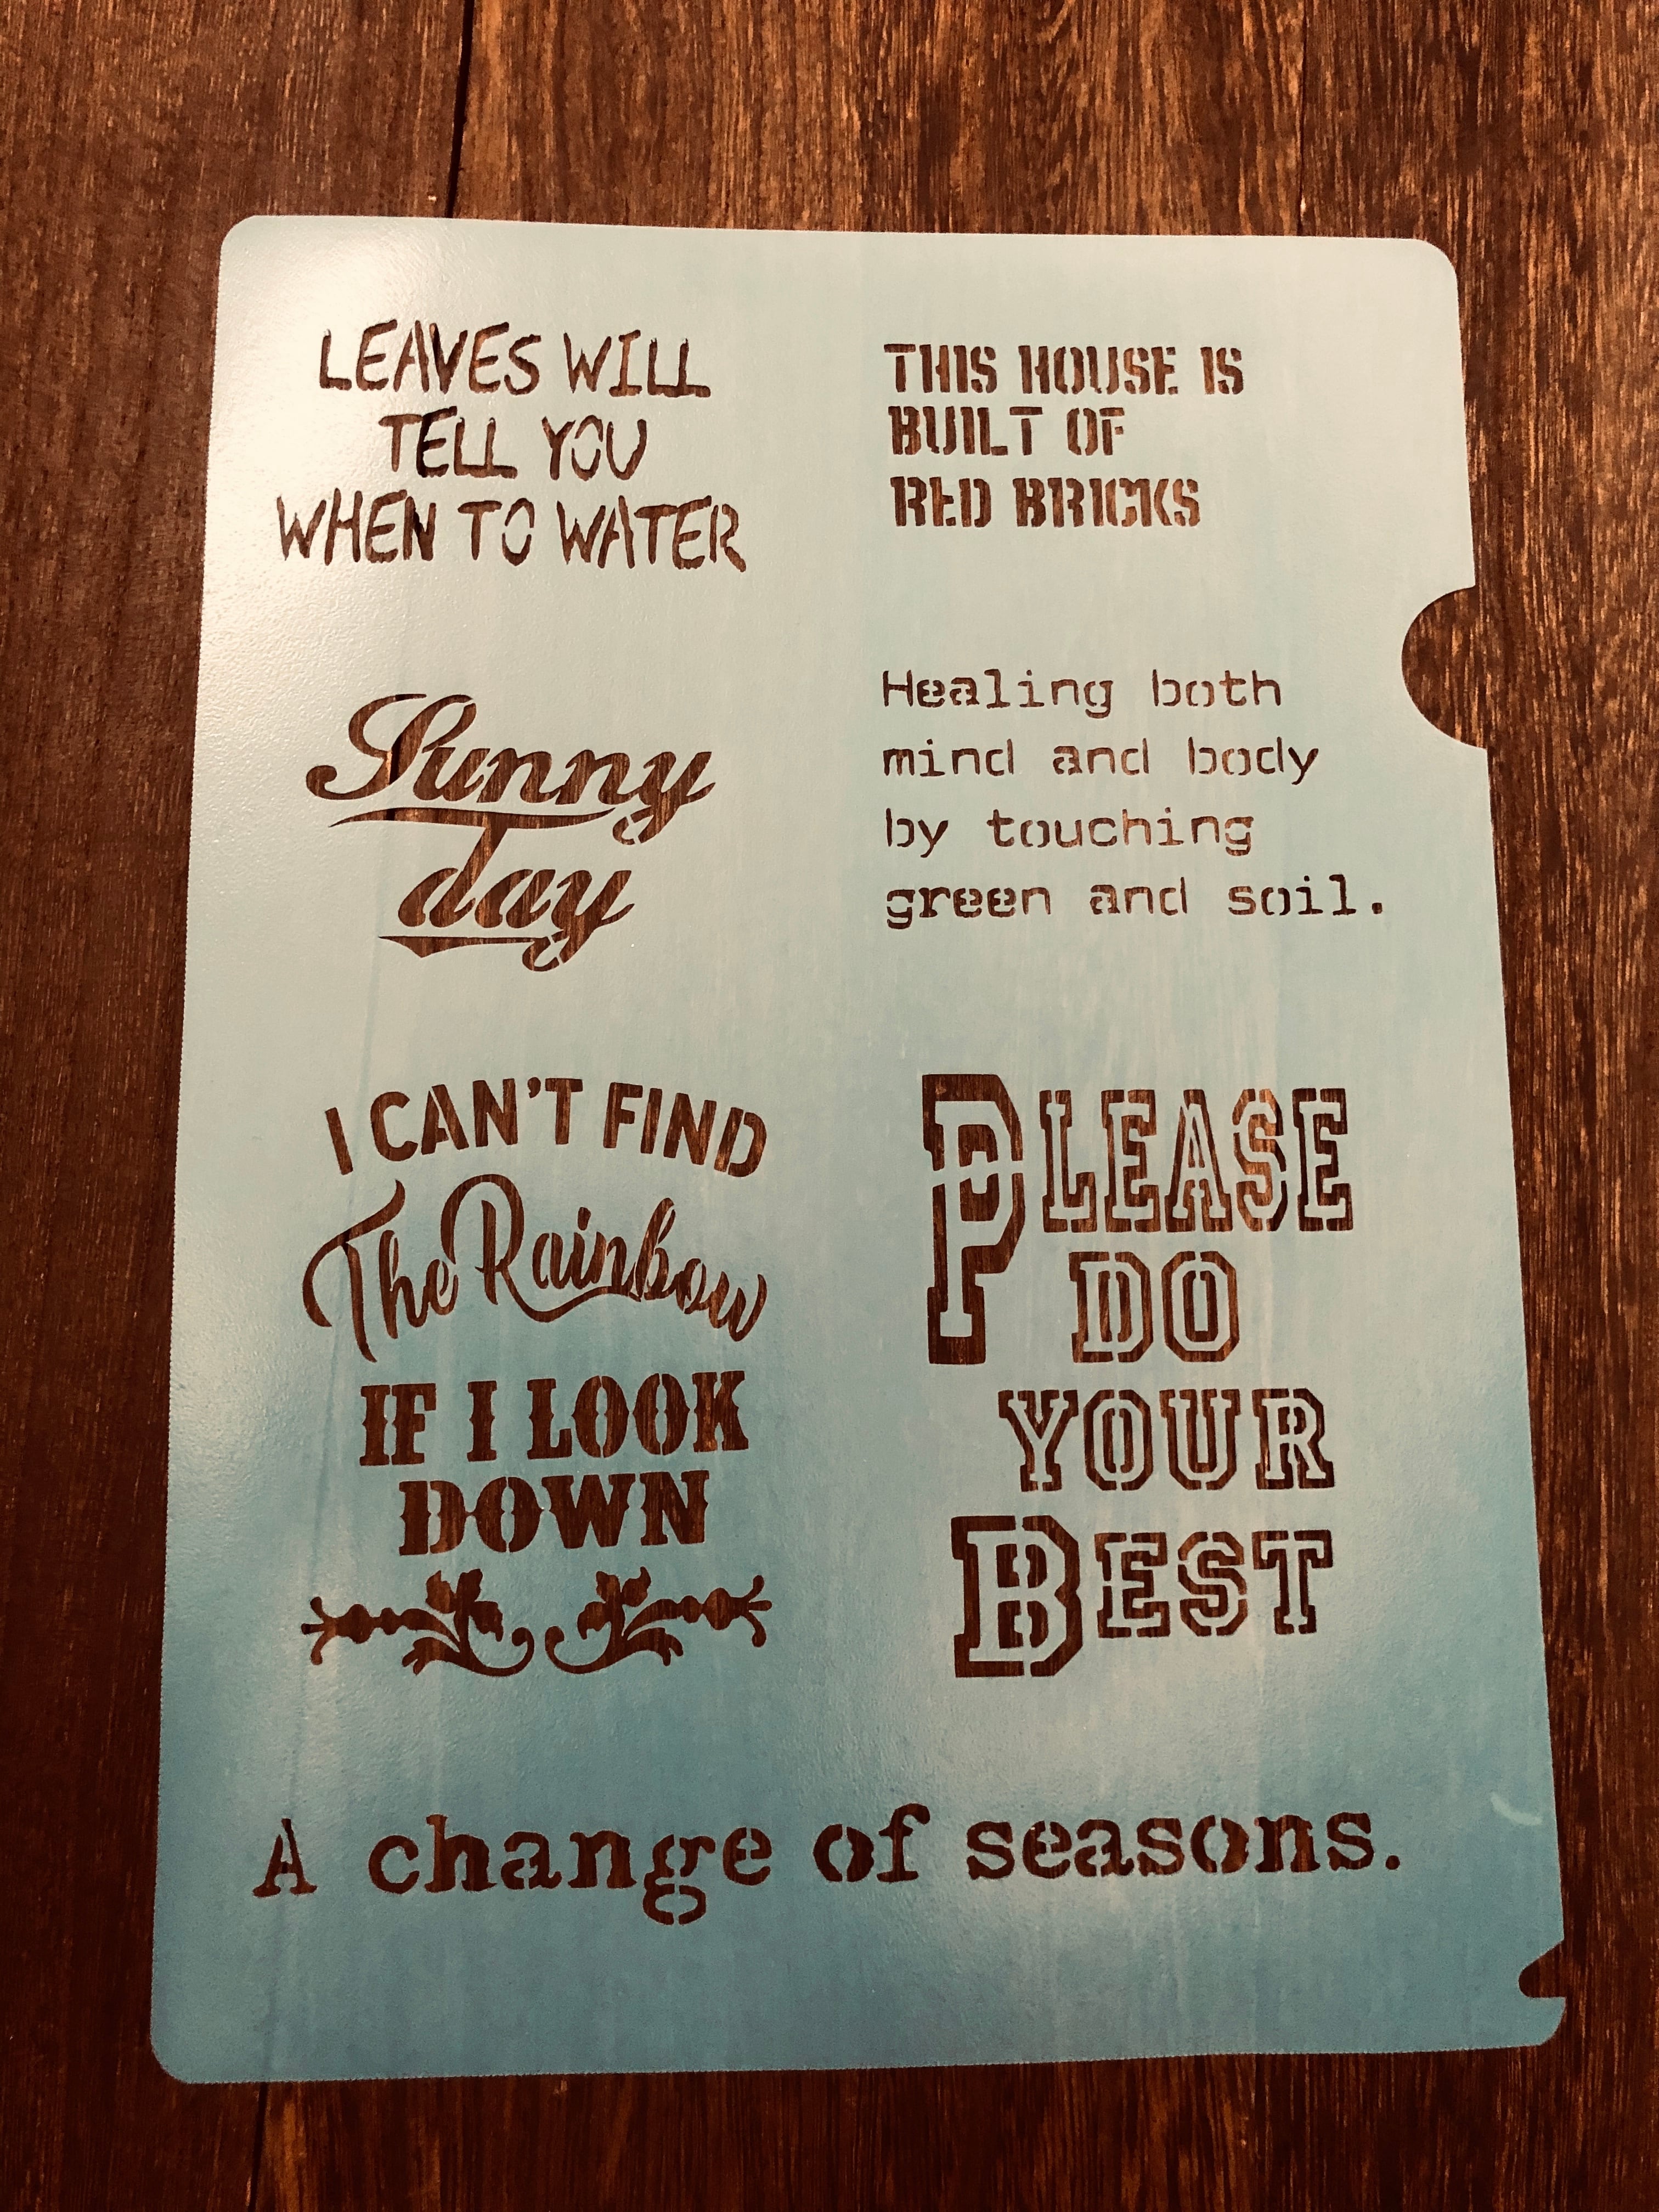 LEAVES WILL
TELL YOU
WHEN TO WATER
THIS HOUSE IS
BUILT OF
RED BRICKS
Sunny
day
Healing both
mind and body
by touching
green and soil.
I CAN'T FIND
The Rainbow
IF I LOOK
DOWN
PLEASE
DO
YOUR
BEST
A change of seasons.